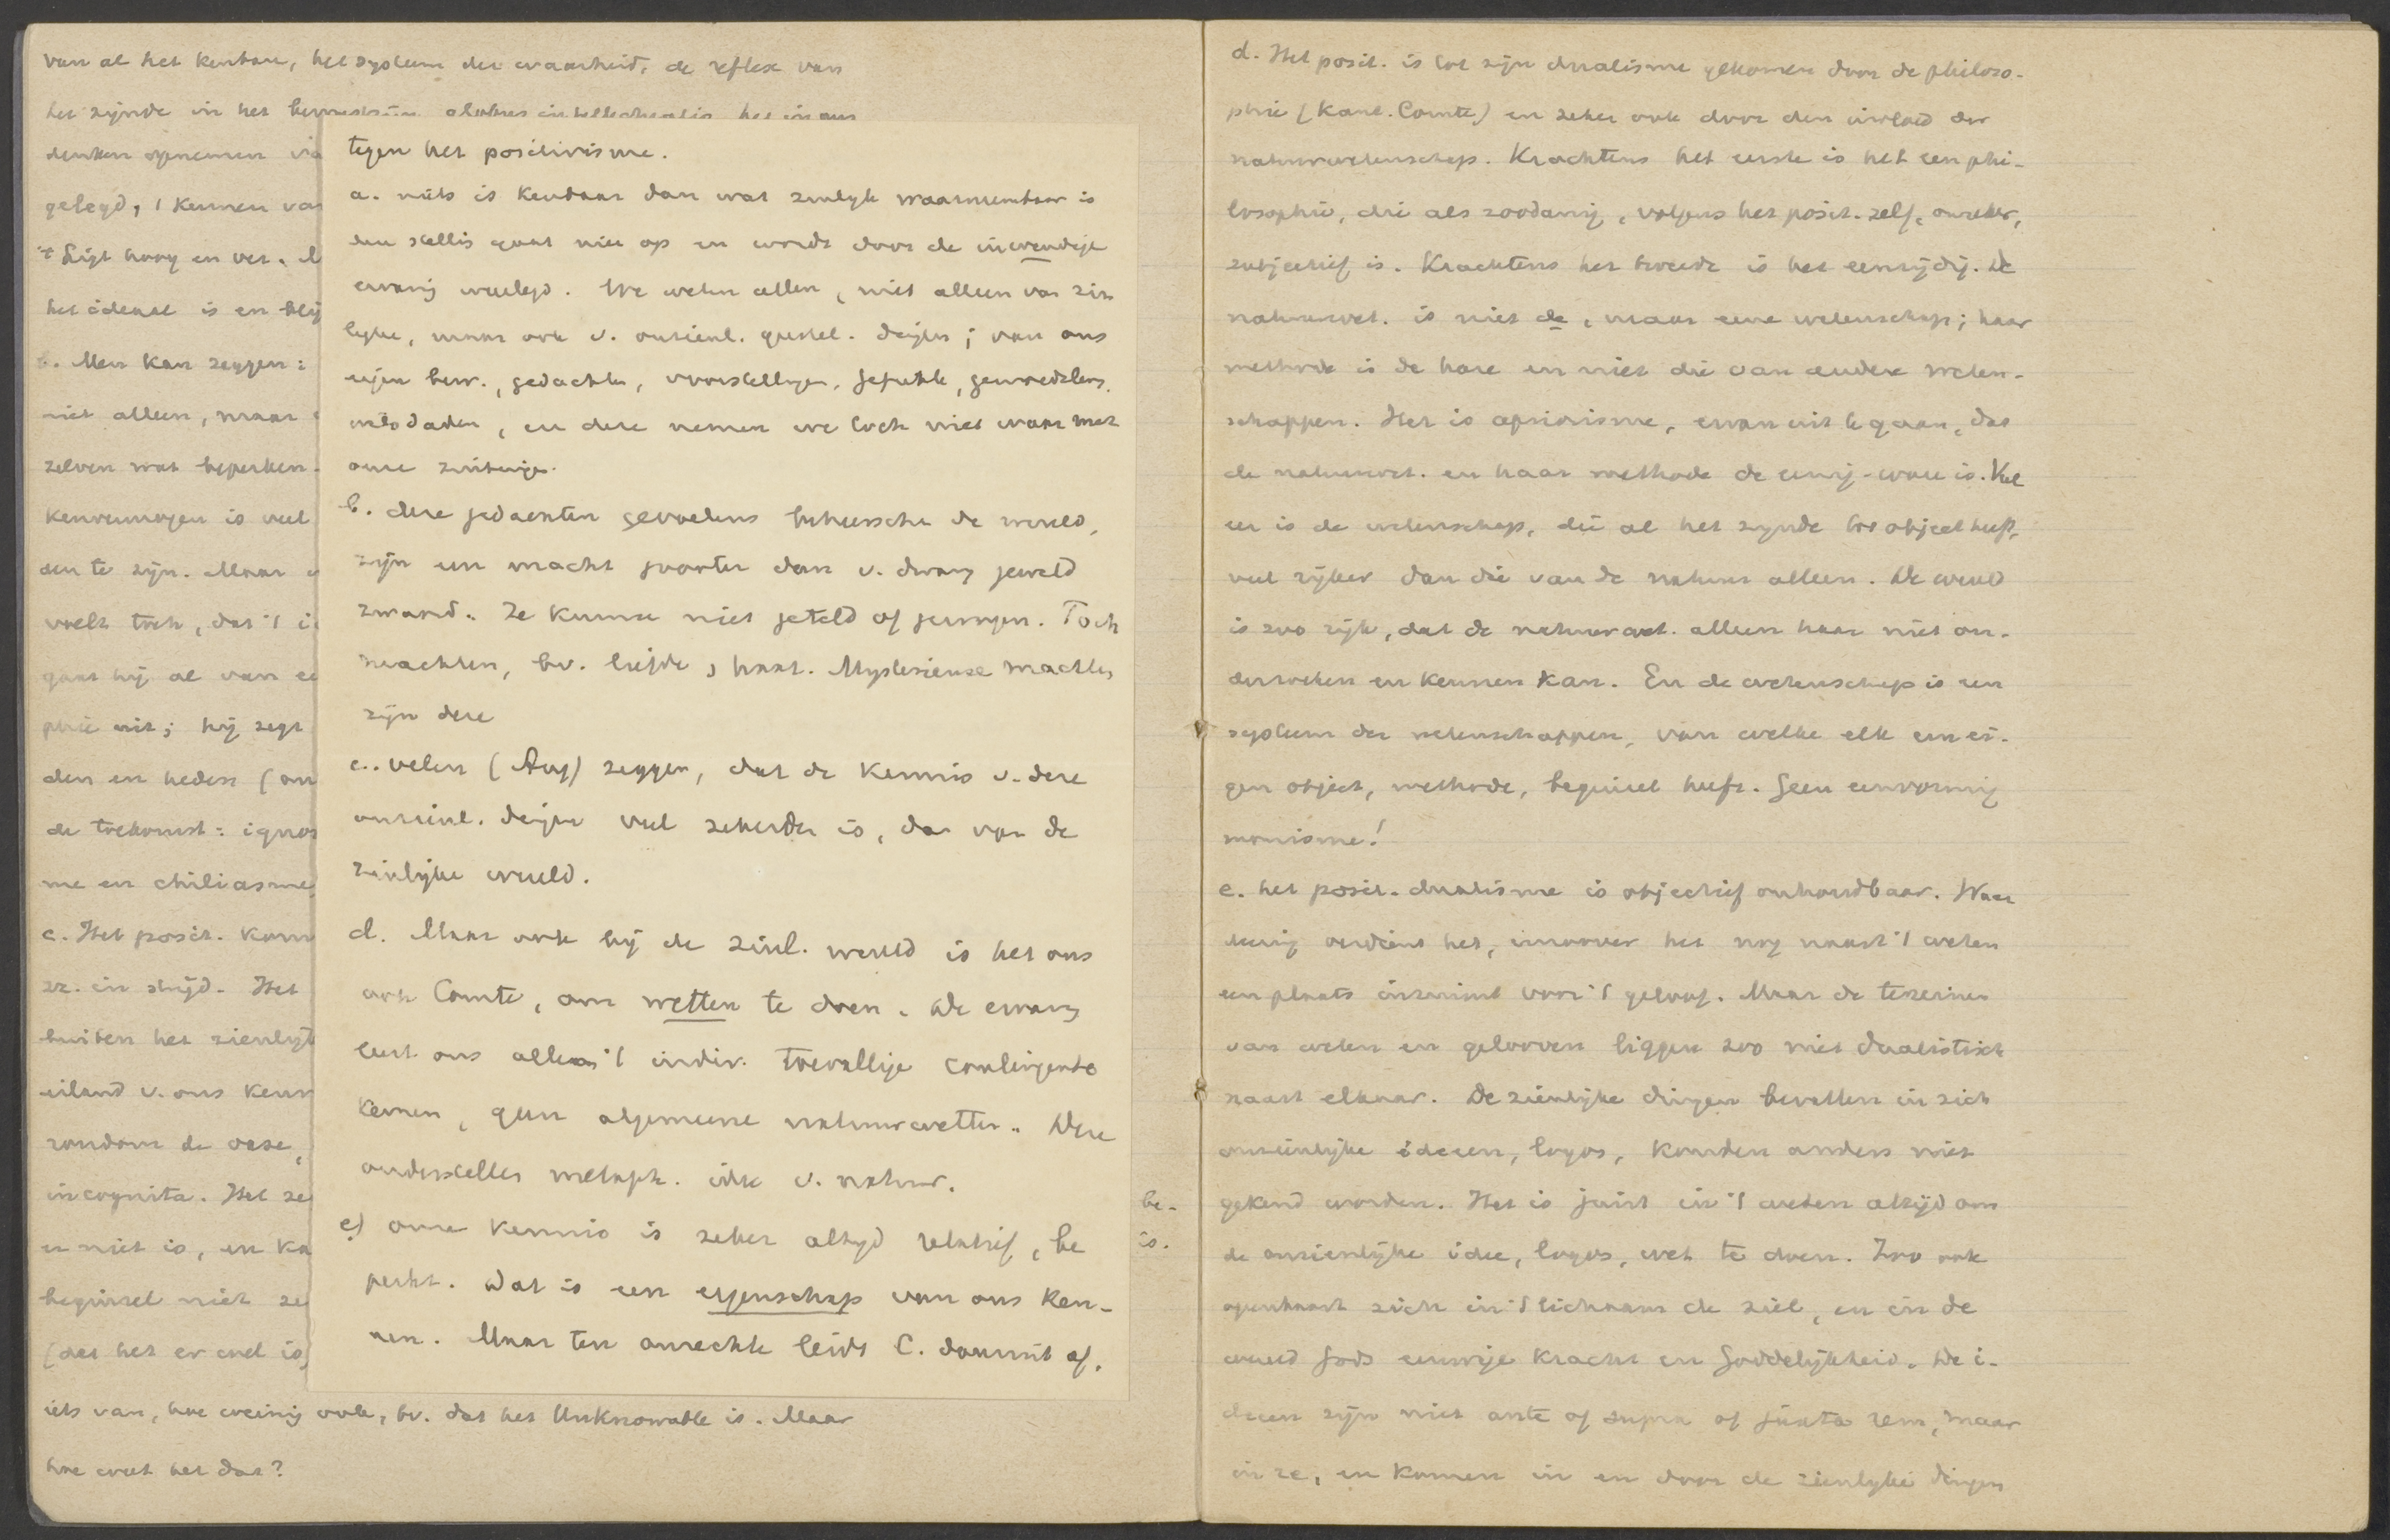 van al het kenbare, het systeem der waarheid, de reflex van
het zijnde in het bewustzijn
denken opnemen
gelegd, 't kennen
't Ligt hoog en ver.
het ideaal is en blij
b. Men kan zeggen:
niet alleen, maar
zelven wat beperken
kenvermogen is veel
den te zijn. Maar
voelt toch, dat 't
gaat hij al van
phie uit; hij zegt
den en heden (
de toekomst: ignor
me en chiliasme
c. Het posit. kom
zr. in strijd. Het
buiten het zienlijk
eiland v. ons kenn
rondom de oase,
incognita. Het ze
er niet is, en ka
beginsel niet ze
(dat het er wel is)
iets van, hoe weinig ook, bv. dat het Unknowable is. Maar
hoe weet het dat?
tegen het positivisme.
a. niets is kenbaar dan wat zinlijk waarneembaar is
deze stellig gaat niet op en wordt door de inwendige
ervaring weerlegd. We weten allen, niet alleen van zin
lijke, maar ook v. onzienl. geestel. dingen; van ons
eigen bew., gedachten, voorstellingen, gefuhle, gemoedsbew.
wilsdaden, en deze nemen we toch niet waar met
onze zintuigen.
b. deze gedachten gevoelens beheerschen de wereld,
zijn een macht grooter dan v. dwang geweld
zwaard. Ze kunnen niet geteld of gewogen. Toch
machten, bv. liefde, haat. Mysterieuse machten
zijn deze
c. velen (Aug) zeggen, dat de kennis v. deze
onzienl. dingen veel zekerder is, dan van de
zinlijke wereld.
d. Maar ook bij de zinl. wereld is het ons
ook Comte, om wetten te doen. De ervarg
leert ons alleen 't indiv. toevallige contingente
kennen, geen algemeene natuurwetten. Deze
onderstellen metaph. idee v. natuur.
e) onze kennis is zeker altijd relatief, be
perkt. Dat is een eigenschap van ons ken-
nen. Maar ten onrechte leidt C. daaruit af.
be-
is.
d. Het posit. is tot zijn dualisme gekomen door de philoso-
phie (Kant. Comte) en zeker ook door den invloed der
natuurwetenschap. Krachtens het eerste is het een phi-
losophie, die als zoodanig, volgens het posit. zelf, onzeker,
subjectief is. Krachtens het tweede is het eenzijdig. De
natuurwet. is niet de, maar eene wetenschap; haar
methode is de hare en niet die van andere weten-
schappen. Het is apriorisme, ervan uit te gaan, dat
de natuurwet. en haar methode de eenig-ware is. Veel
eer is de wetenschap, die al het zijnde tot object heeft,
veel rijker dan die van de natuur alleen. De wereld
is zoo rijk, dat de natuurwet. alleen haar niet on-
derzoeken en kennen kan. En de wetenschap is een
systeem der wetenschappen, van welke elk een ei-
gen object, methode, beginsel heeft. Geen eenvormig
monisme!
e. het posit. dualisme is objectief onhoudbaar. Waar
deering verdient het, inzoover het nog naast 't weten
een plaats inruimt voor 't geloof. Maar de terreinen
van weten en gelooven liggen zoo niet dualistisch
naast elkaar. De zienlijke dingen bevatten in zich
onzienlijke ideeen, logos, konden anders niet
gekend worden. Het is juist in 't weten altijd om
de onzienlijke idee, logos, wet te doen. Zoo ook
openbaart zich in 't lichaam de ziel, en in de
wereld Gods eeuwige kracht en Goddelijkheid. De i-
deeen zijn niet ante of supra of juxta rem, maar
in re, en komen in en door de zienlijke dingen